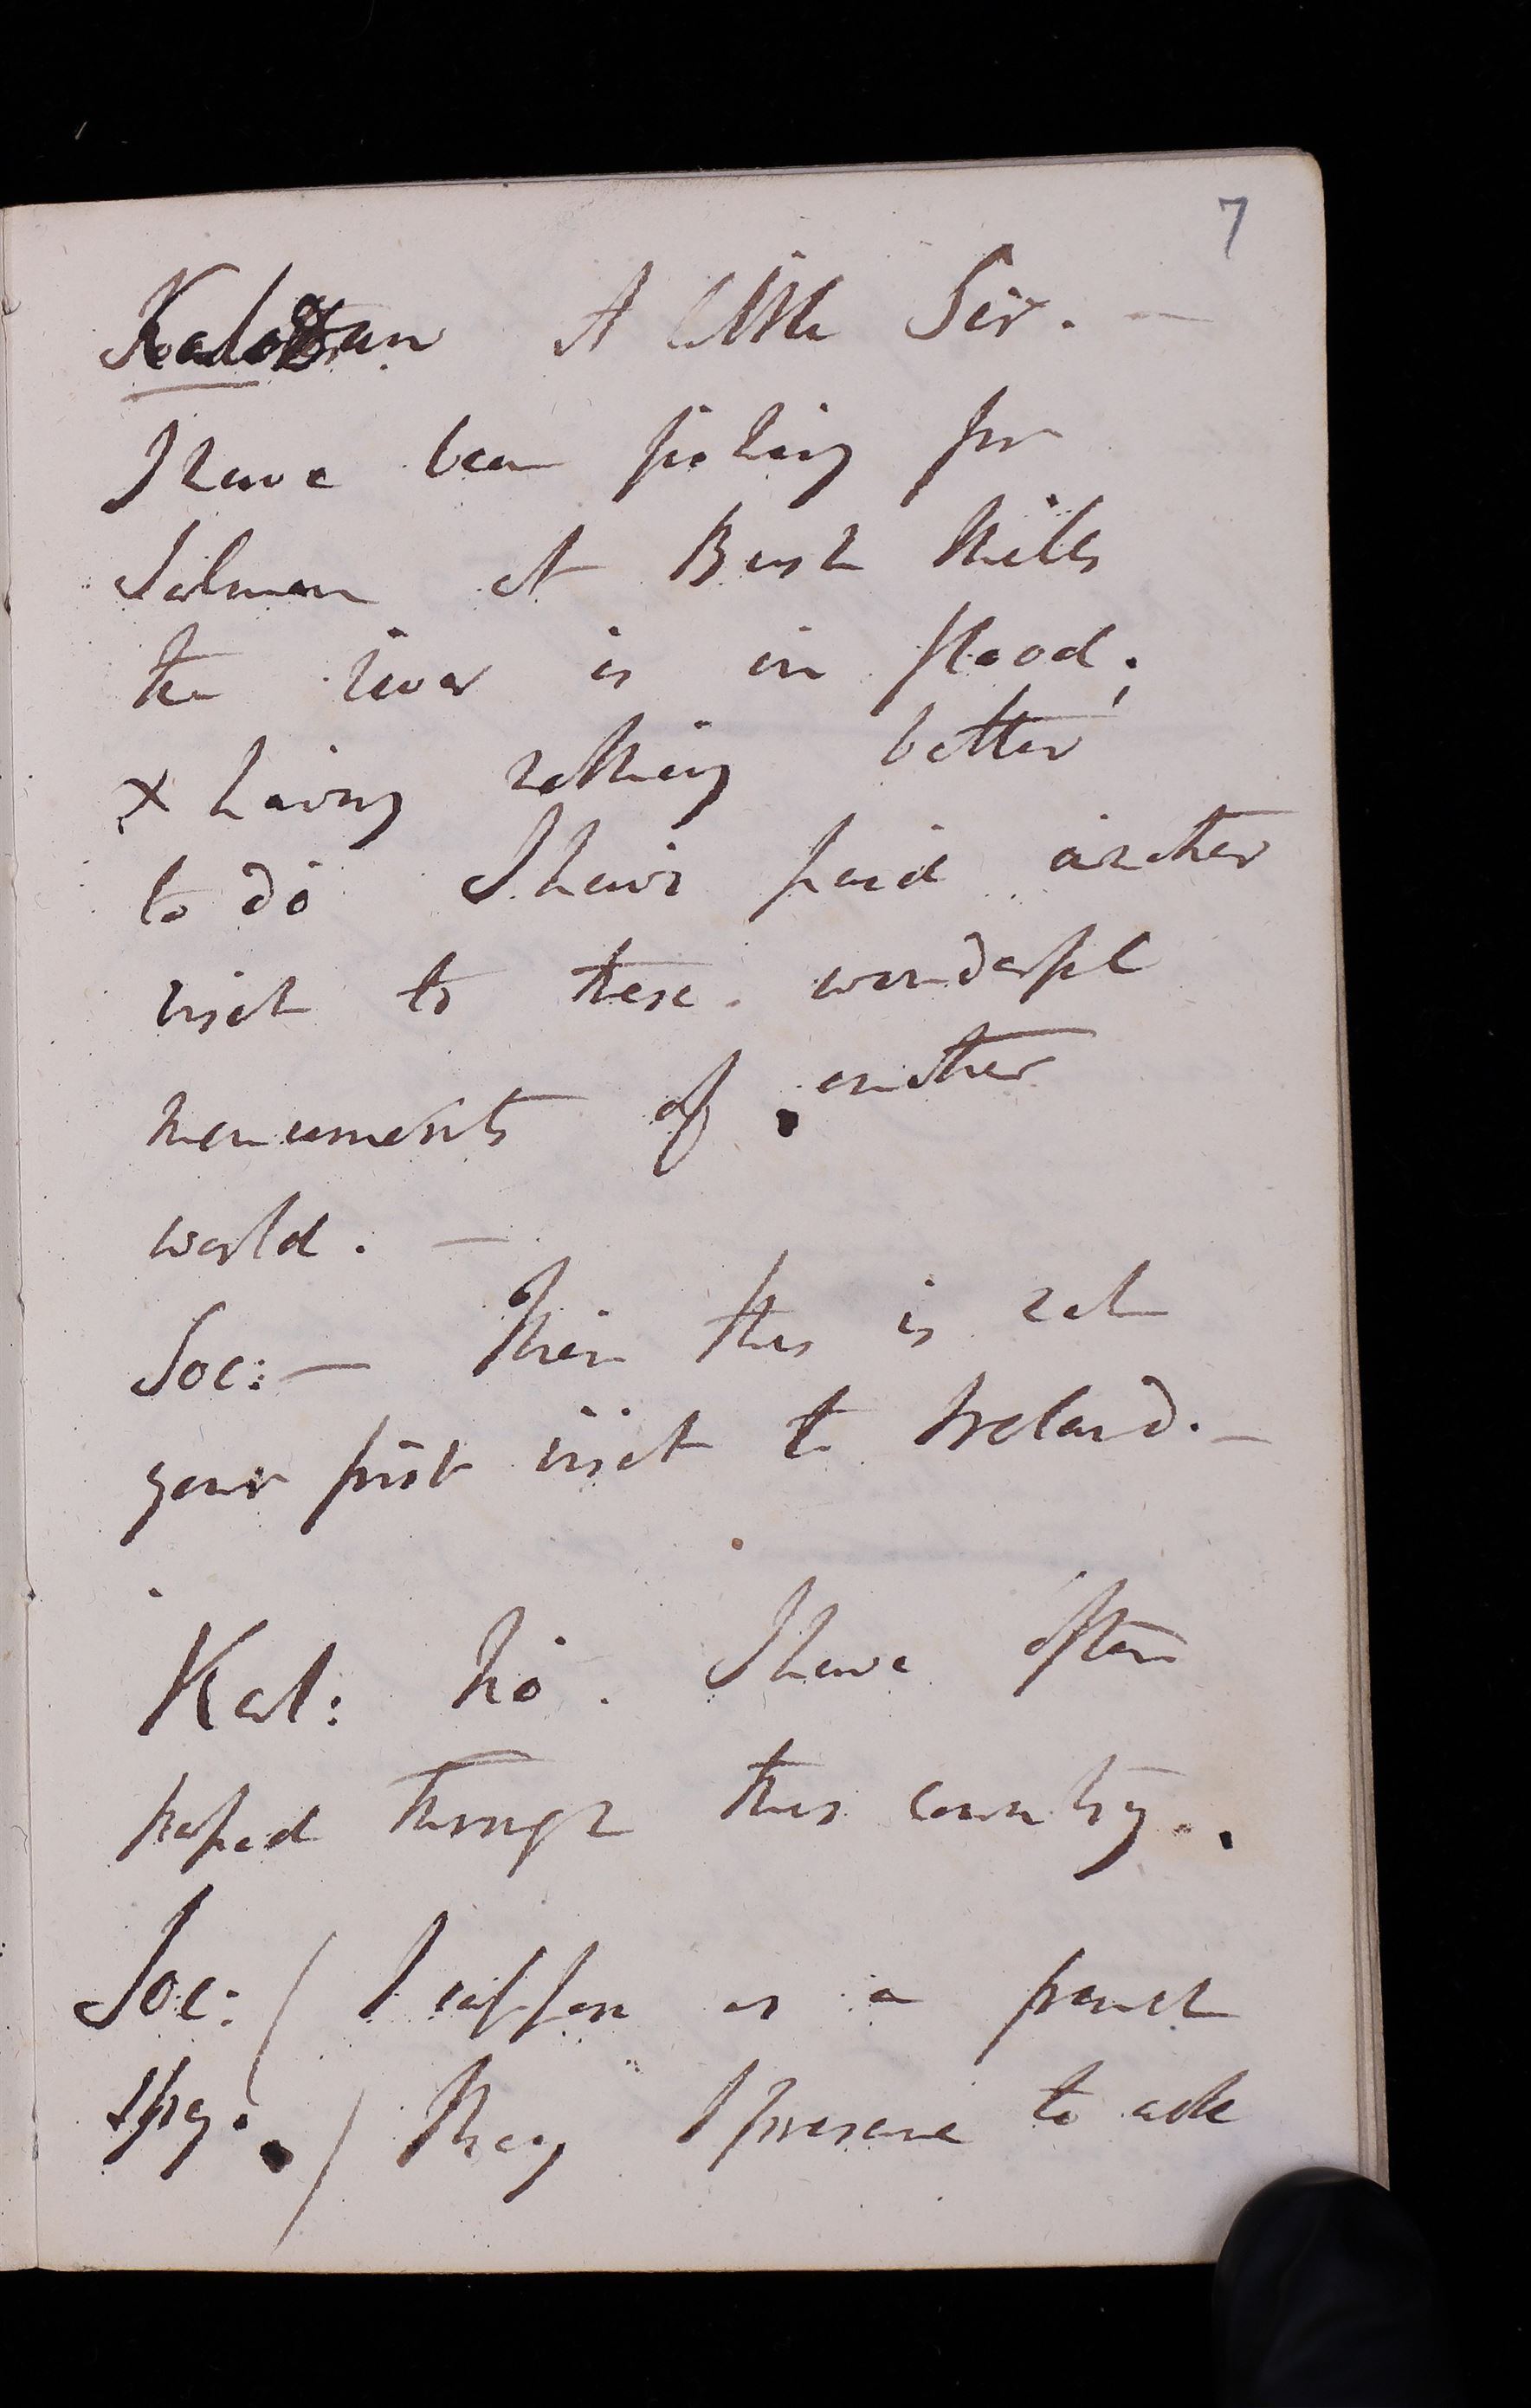 7
A little Sir. —
I have been fishing for
Salmon at Bush Mills
the river is in flood;
& having nothing better
to do I have paid another
visit to these wonderful
monuments of another
world. —
Soc: — Then this is not
your first visit to Ireland. —
Kal: No. I have often
passed through this country.
Soc: / I suppose as a
/ May I presume to ask